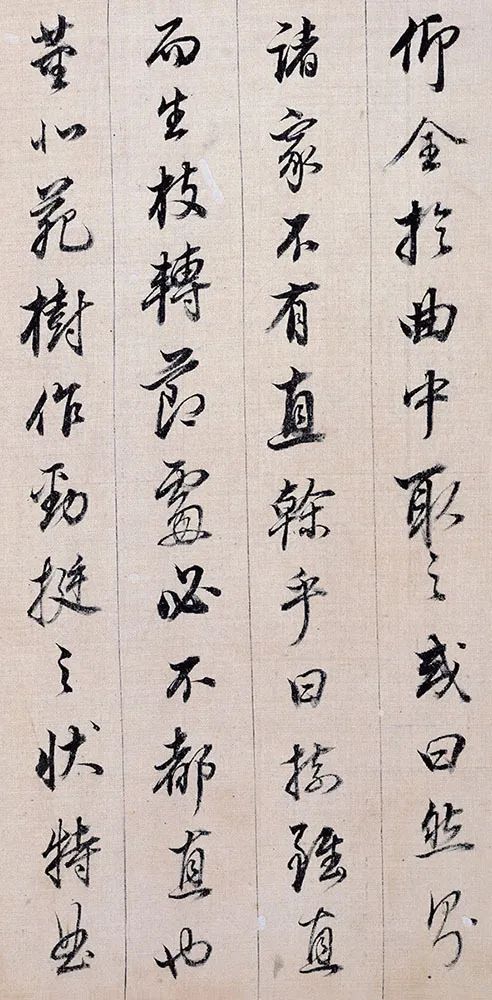 仰全於曲中取之或曰然則
諸家不有直幹乎曰樹雖直
而生枝轉節處必不都直也
董北苑樹作勁挺之狀特曲